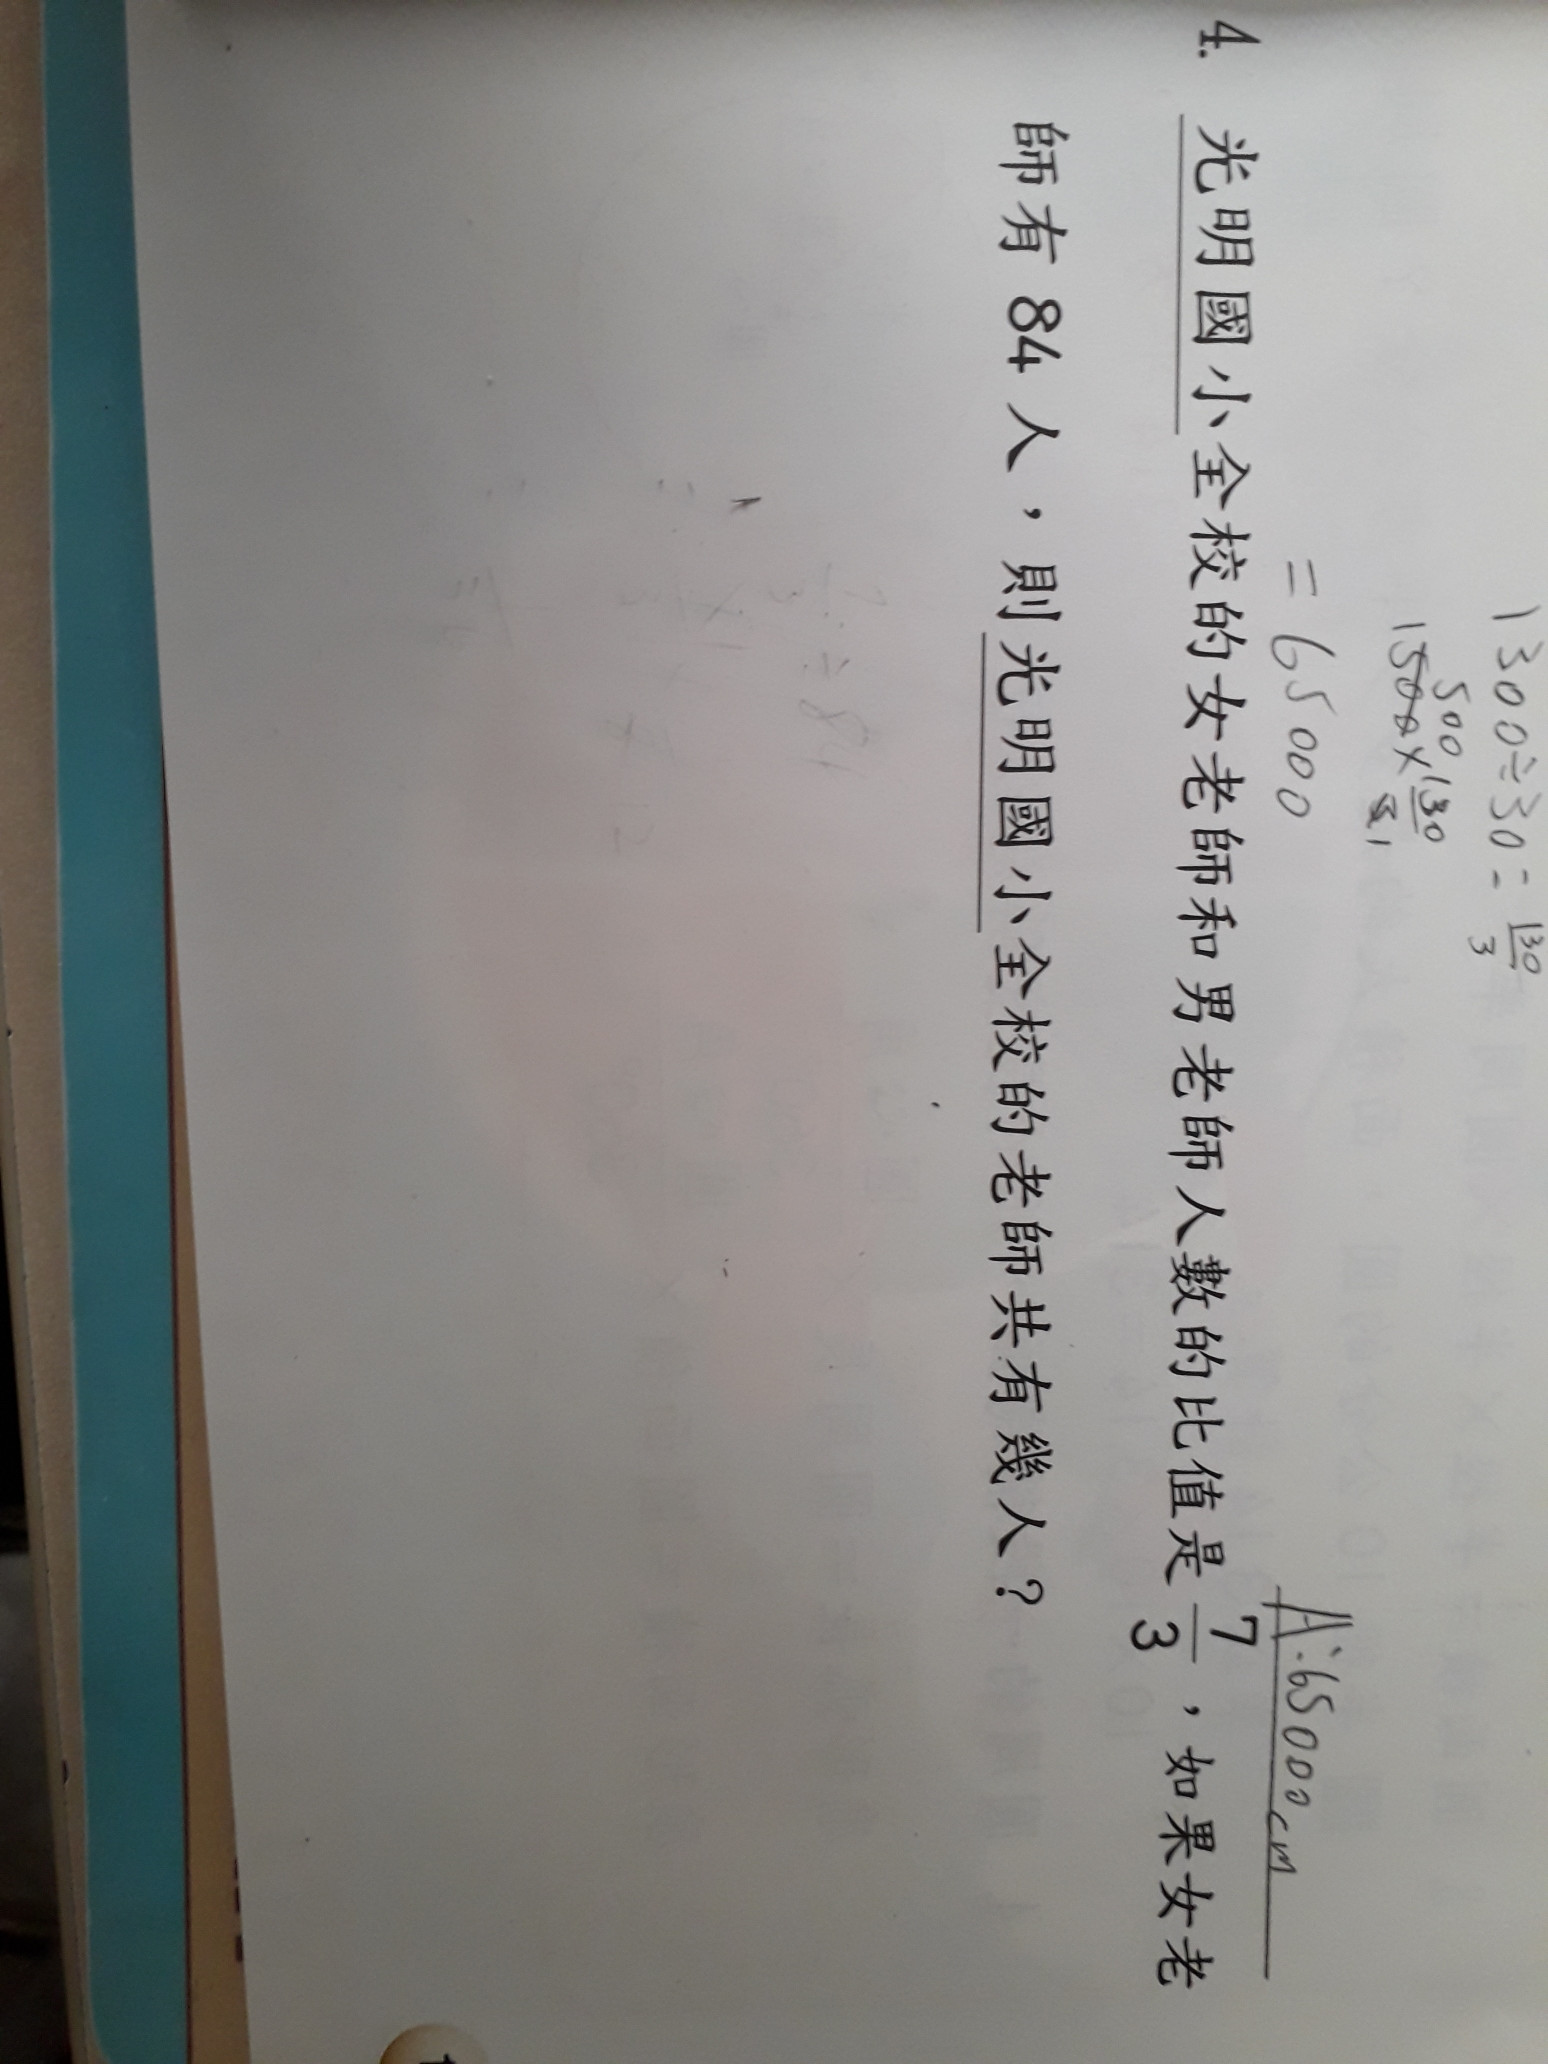 1300÷30=130/3
500
1500×130/3 1
=65000
A:65000cm
4. 光明國小全校的女老師和男老師人數的比值是 7/3，如果女老
師有 84 人，則光明國小全校的老師共有幾人？